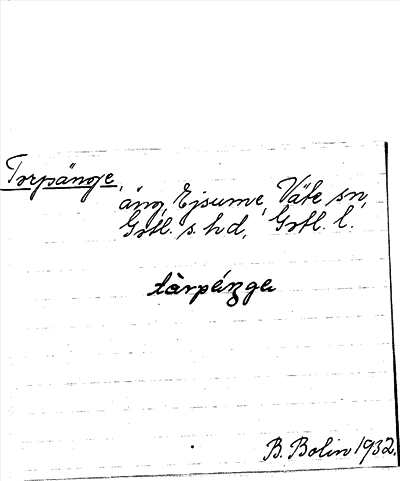 Torpänge,
äng, Ejsume, Väte sn,
Gotl. s. hd, Gotl. l.
tàrpéŋge
B. Bolin 1932.